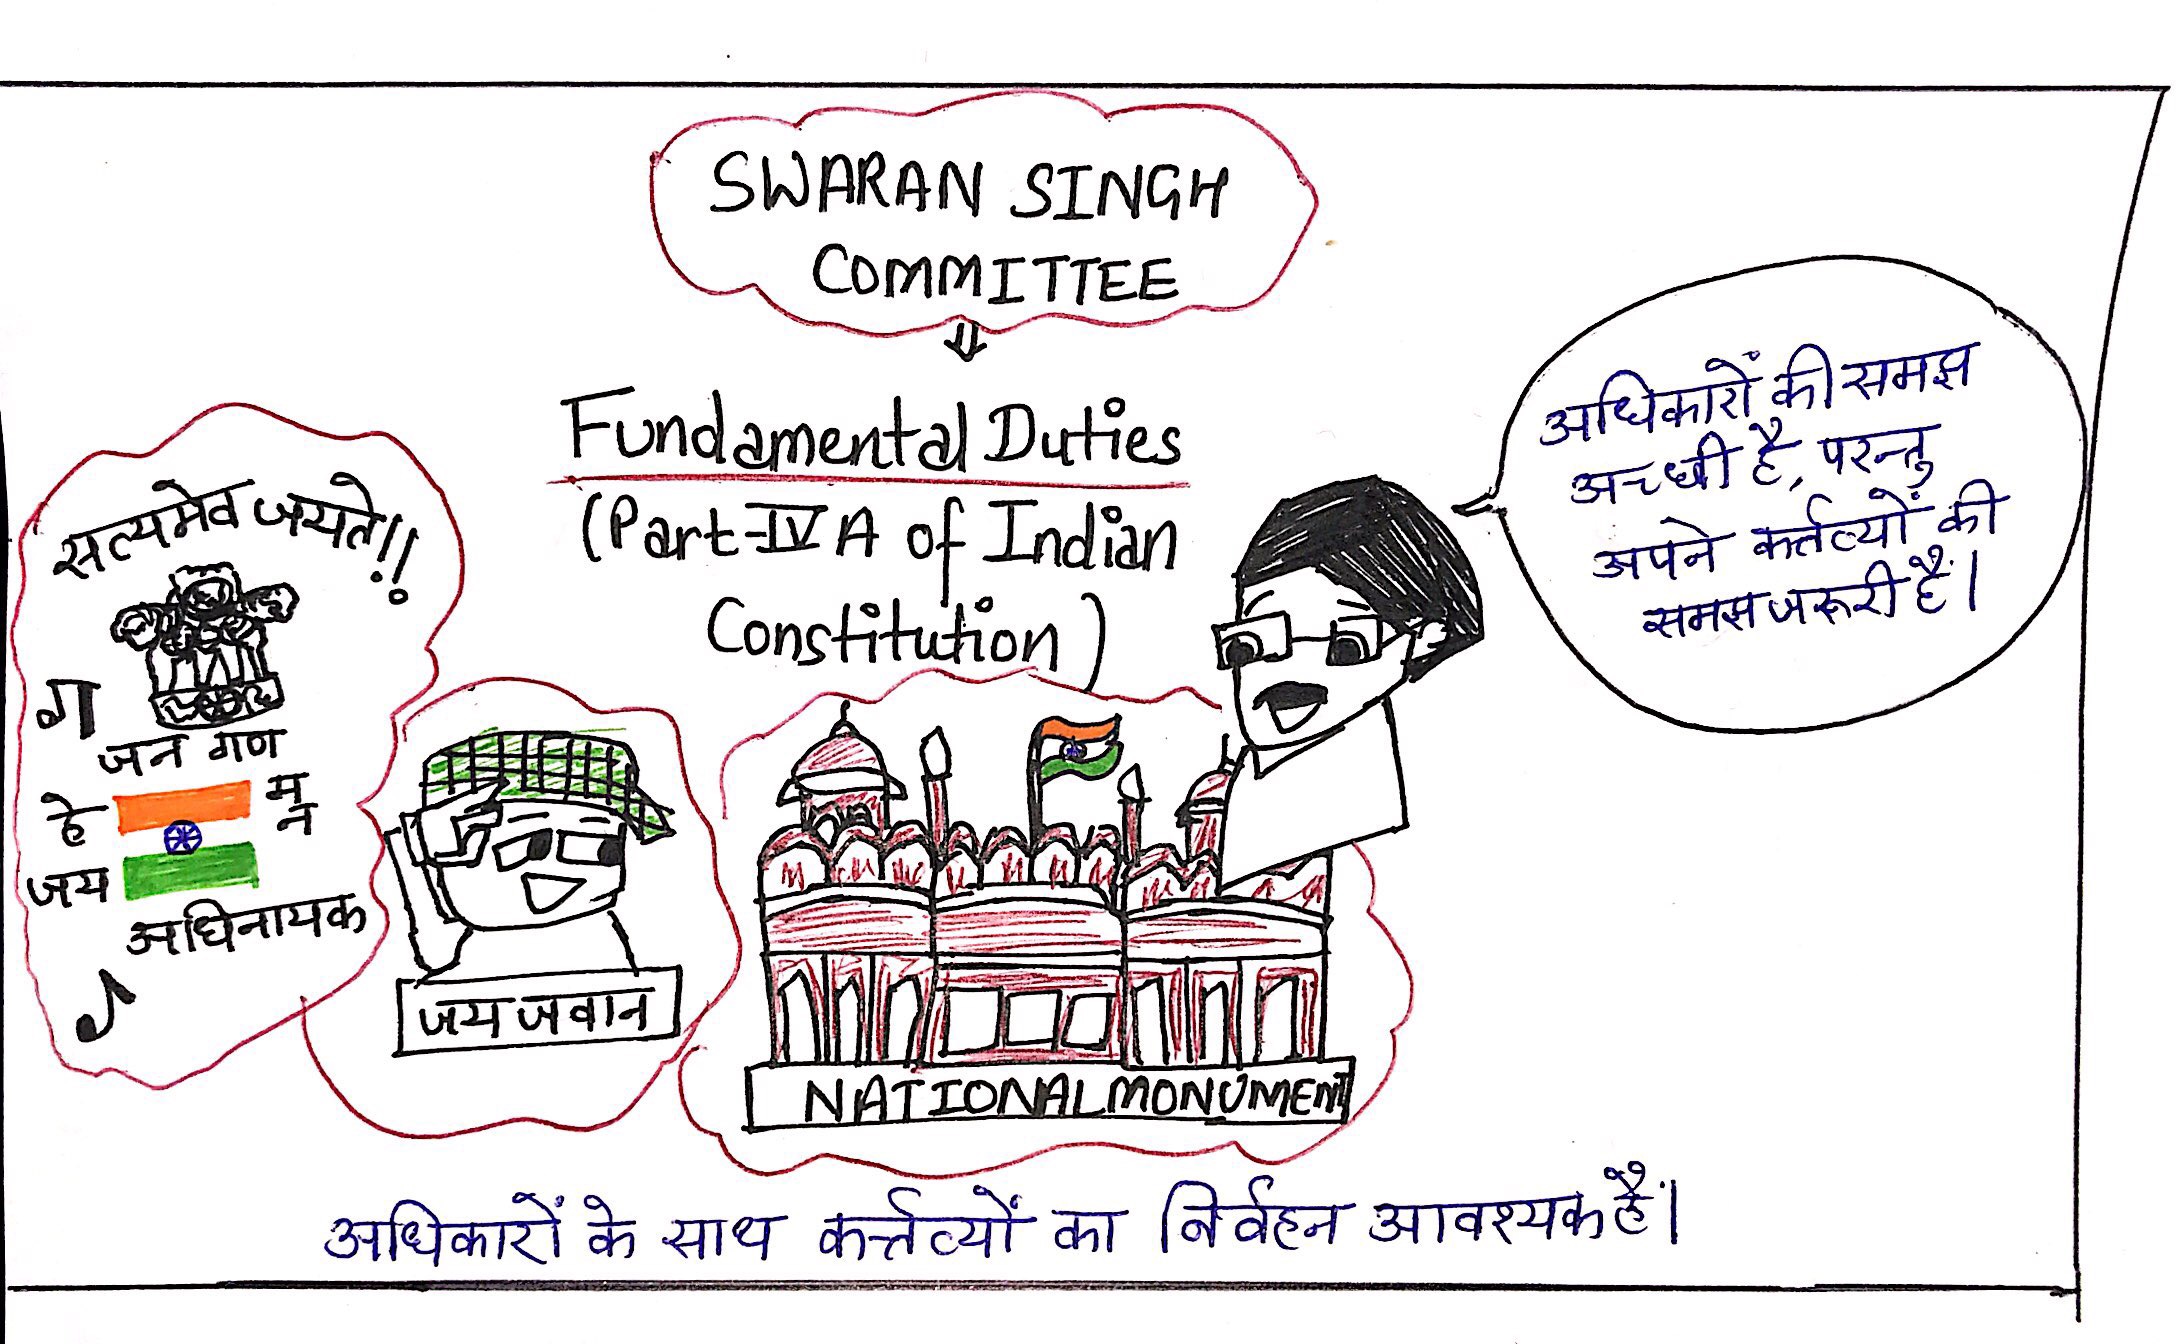 SWARAN SINGH
COMMITTEE
Fundamental Duties
(Part-IV A of Indian
Constitution)
अधिकारों की समझ
अच्छी है, परन्तु
अपने कर्तव्यों की
समझ जरूरी हैं।
सत्यमेव जयते!!
जन गण
मन
हे
जय
अधिनायक
जय जवान
NATIONAL MONUMENT
अधिकारों के साथ कर्त्तव्यों का निर्वहन आवश्यक हैं।